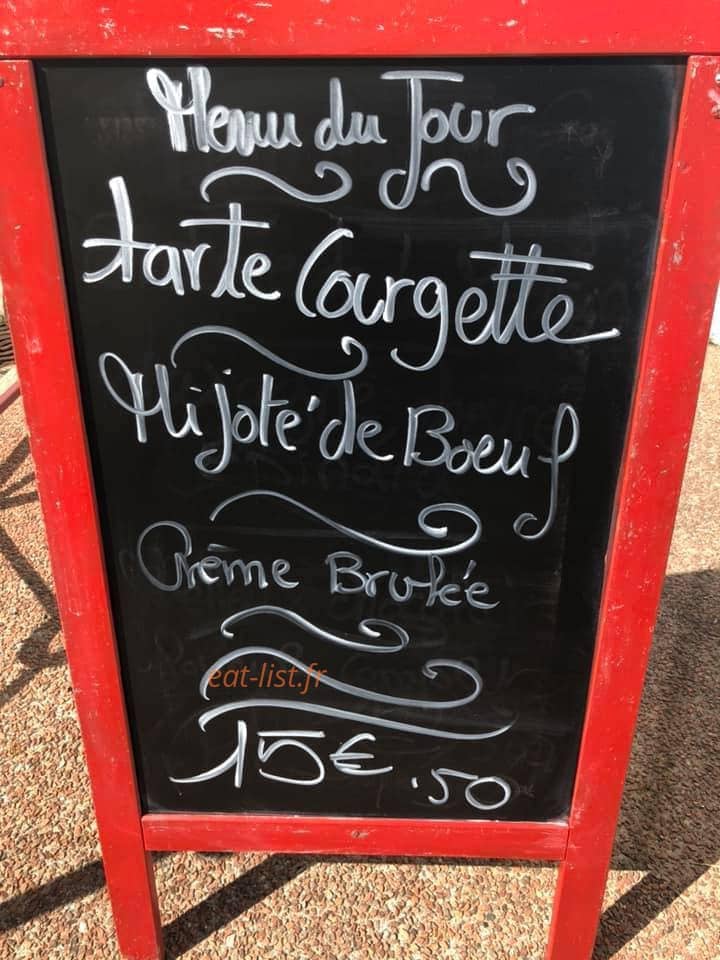 Menu du Jour
tarte Courgette
Mijoté de Boeuf
Crème Brulée
eat-list.fr
15€.50